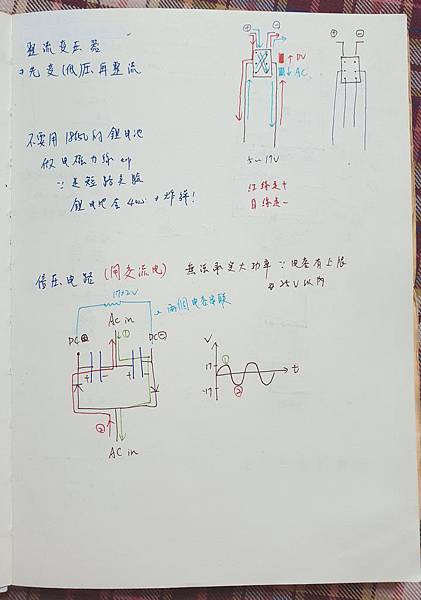 整流变压器
→先变低压再整流
不要用18650的鋰电池
做电磁力線exp
∵是短路实驗
鋰电池会 炸弹!
+ -
+ -
↑ DV
↓ AC
5~17V
红線是+
白線是-
倍压电路 (用交流电) 無法承受大功率 ∵电容有上限
25V以內
17×2V
→兩個电容串联
AC in
DC⊕
DC⊖
①
+ -
+ -
②
AC in
V
17
-17
①
②
t